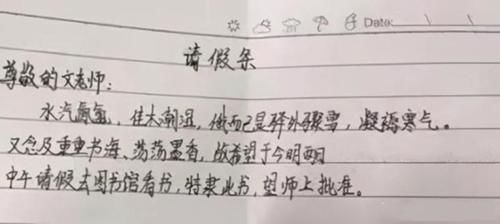 Date: \ \
请假条
尊敬的文老师：
水汽氤氲，佳木潮湿，俄而已是驿外骤雪，凝孺寒气。
又念及重重书海、荡荡墨香，故希望于今明两日
中午请假去图书馆看书，特隶此书，望师上批准。